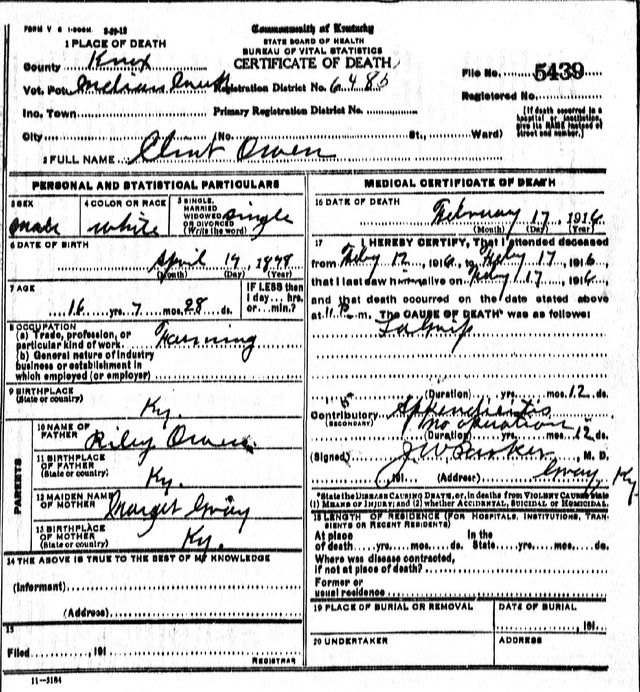 FORM V S 1-500M 3-29-13
Commonwealth of Kentucky
STATE BOARD OF HEALTH
BUREAU OF VITAL STATISTICS
CERTIFICATE OF DEATH
1 PLACE OF DEATH
County Knox
File No. 5439
Vot. Pct. Indian Creek Registration District No. 6485
Registered No.
Inc. Town Primary Registration District No.
City (No. St., Ward)
[If death occurred in a hospital or institution, give its NAME instead of street and number.]
2 FULL NAME Clint Owen
PERSONAL AND STATISTICAL PARTICULARS
3 SEX
male
4 COLOR OR RACE
white
5 SINGLE, MARRIED WIDOWED OR DIVORCED (Write the word)
single
6 DATE OF BIRTH
April 19, 1898
(Month) (Day) (Year)
7 AGE
16 yrs. 7 mos. 28 ds.
IF LESS then 1 day... hrs. or... min.?
8 OCCUPATION
(a) Trade, profession, or particular kind of work. Farming
(b) General nature of industry
business or establishment in
which employed (or employer)
9 BIRTHPLACE
(State or country)
Ky.
PARENTS
10 NAME OF FATHER
Riley Owen
11 BIRTHPLACE OF FATHER
(State or country)
Ky.
12 MAIDEN NAME OF MOTHER
Marget Gray
13 BIRTHPLACE OF MOTHER
(State or country)
Ky.
14 THE ABOVE IS TRUE TO THE BEST OF MY KNOWLEDGE
(Informant)
(Address)
15
Filed , 191
REGISTRAR
11-3184
MEDICAL CERTIFICATE OF DEATH
16 DATE OF DEATH
February 17, 1916
(Month) (Day) (Year)
17 I HEREBY CERTIFY, That I attended deceased
from Feby 12, 1916, to Feby 17, 1916
that I last saw him alive on Feby 17, 1916,
and that death occurred on the date stated above
at 11 P m. The CAUSE OF DEATH* was as follows:
LaGrip
(Duration) yrs. mos. 12 ds.
Contributory Appendicitis
(SECONDARY) no operation
(Duration) yrs. mos. 12 ds.
(Signed) J W Parker M. D.
, 191 (Address) Gray, Ky
*State the DISEASE CAUSING DEATH, or, in deaths from VIOLENT CAUSES state
(1) MEANS OF INJURY; and (2) whether ACCIDENTAL, SUICIDAL OR HOMICIDAL.
18 LENGTH OF RESIDENCE (FOR HOSPITALS, INSTITUTIONS, TRANSIENTS OR RECENT RESIDENTS)
At place In the
of death yrs. mos. ds. State yrs. mos. ds.
Where was disease contracted,
if not at place of death?
Former or
usual residence
19 PLACE OF BURIAL OR REMOVAL
DATE OF BURIAL
, 191
20 UNDERTAKER
ADDRESS